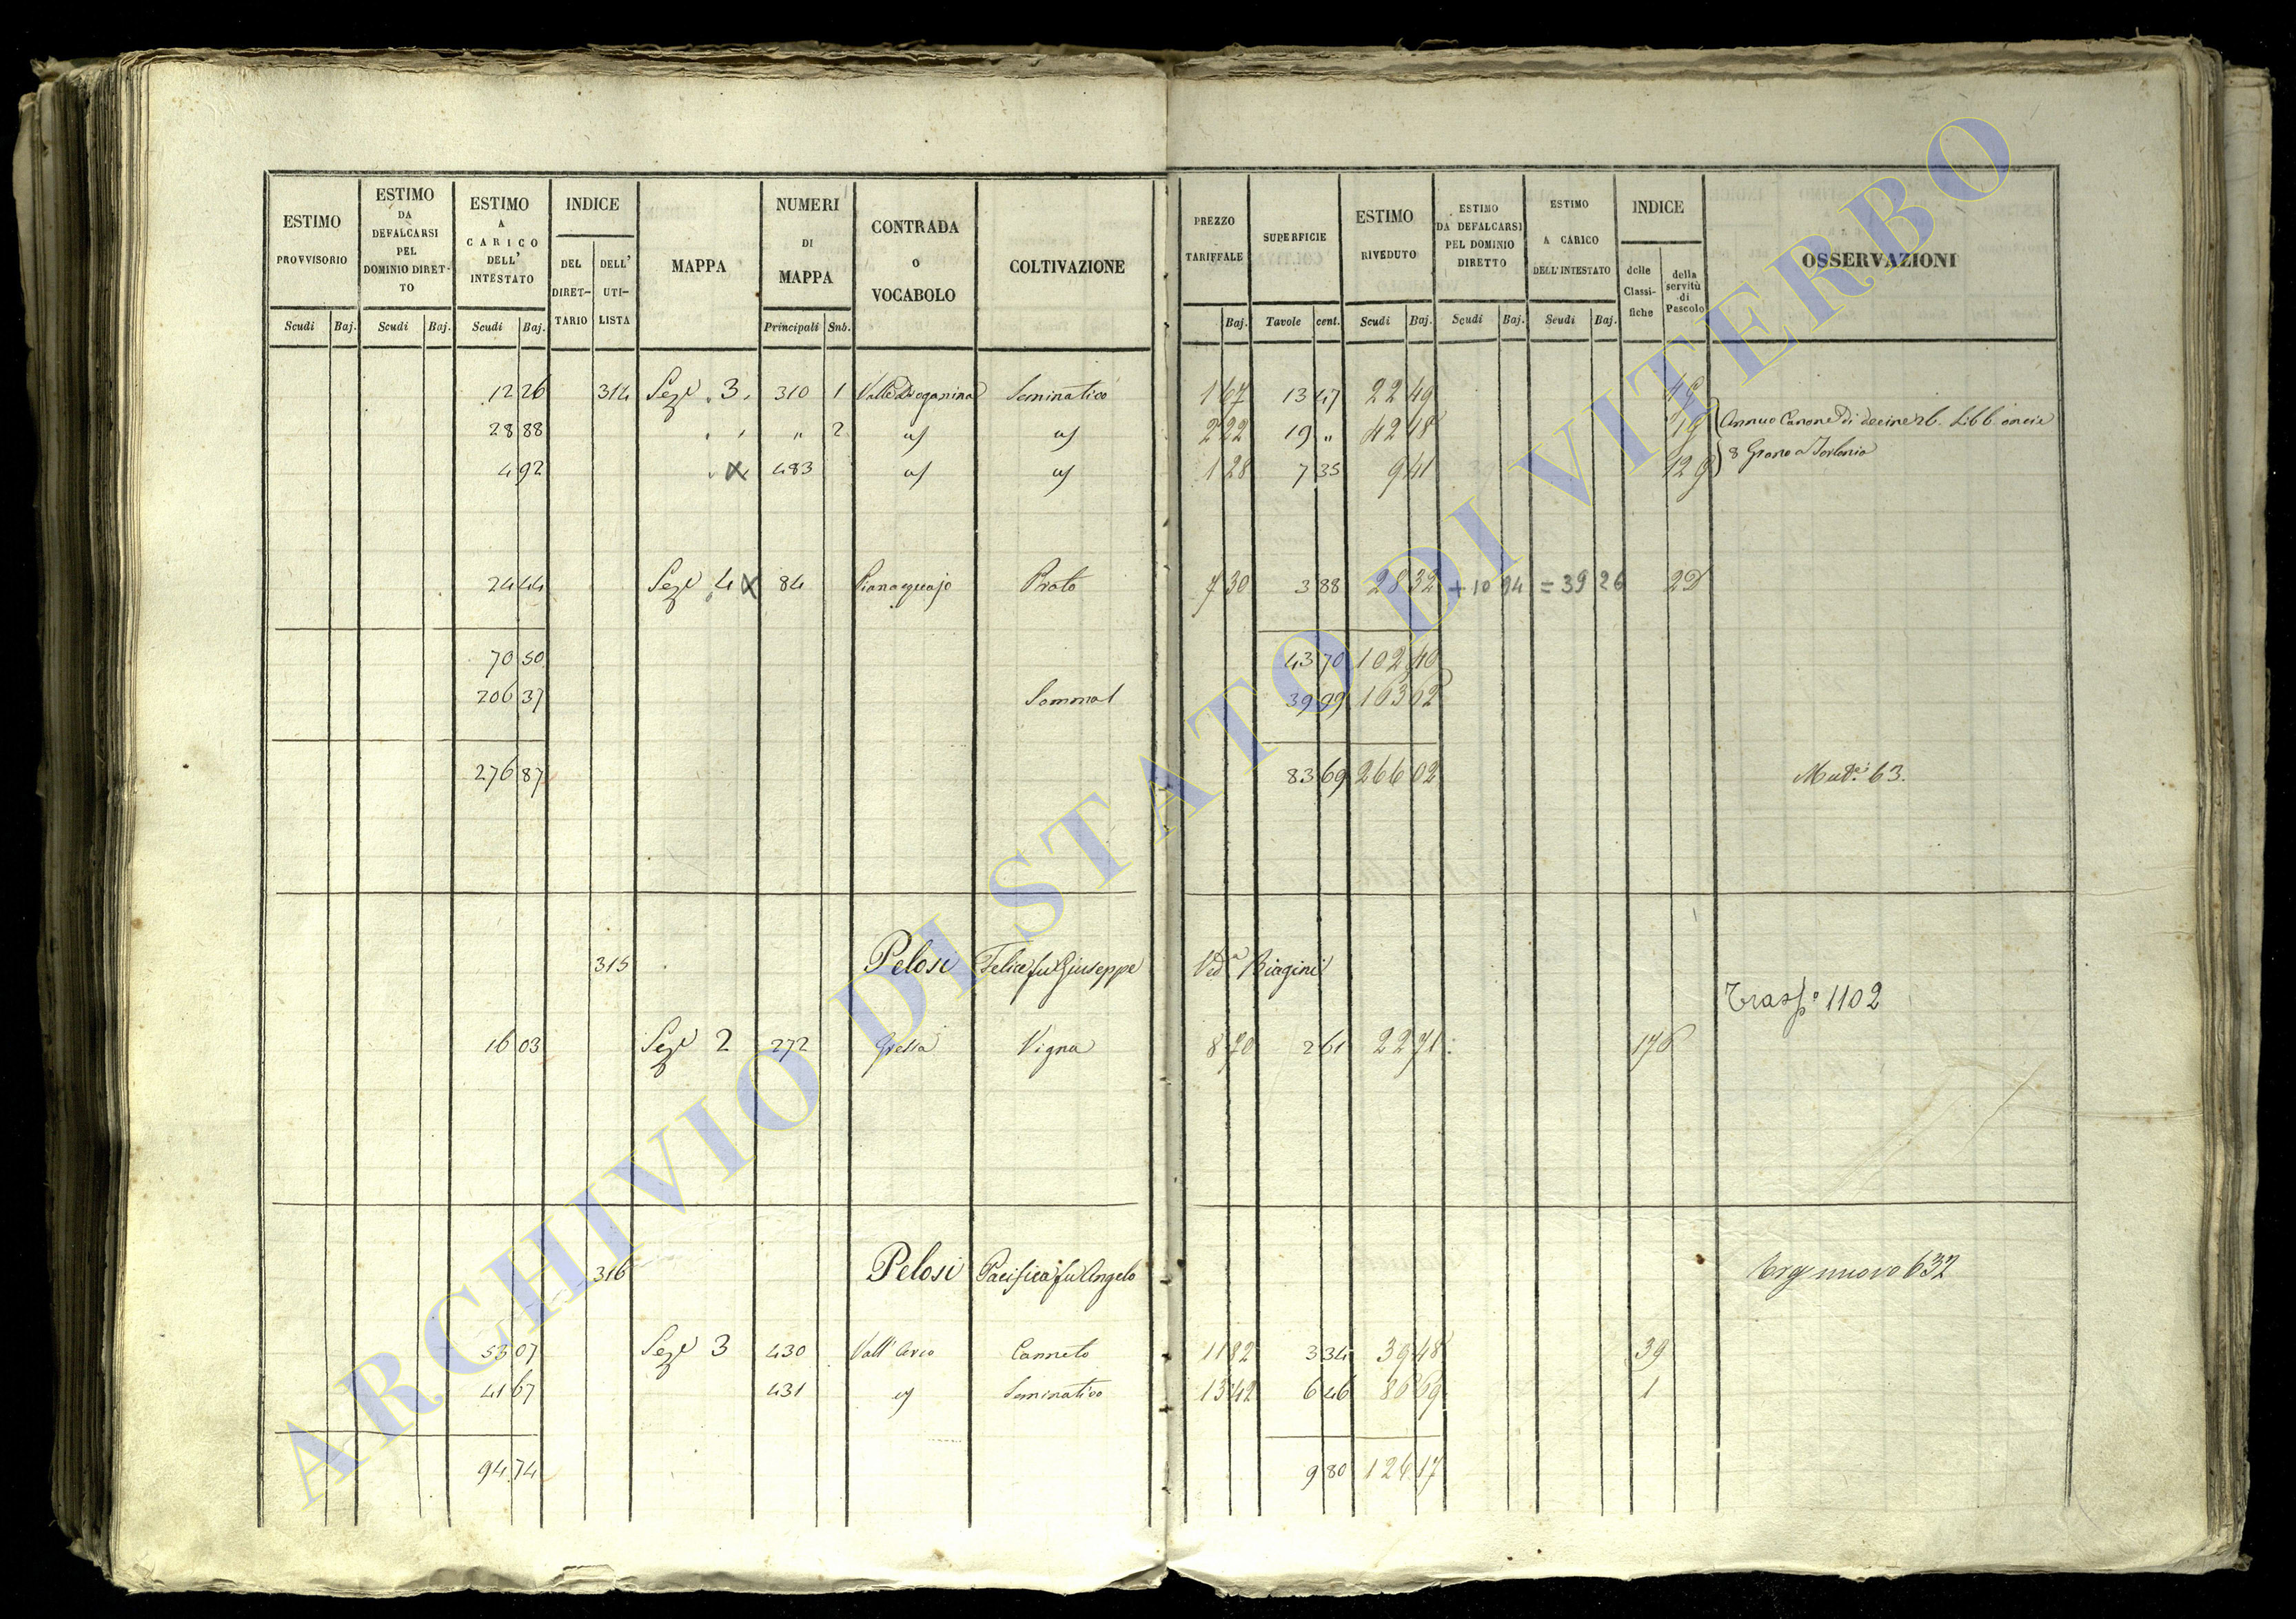 ESTIMO PROVVISORIO Scudi Baj.
ESTIMO DA DEFALCARSI PEL DOMINIO DIRET- TO Scudi Baj.
ESTIMO A CARICO DELL' INTESTATO Scudi Baj.
INDICE DEL DIRET- TARIO DELL' UTI- LISTA
MAPPA
NUMERI DI MAPPA Principali Sub.
CONTRADA o VOCABOLO
COLTIVAZIONE
PREZZO TARIFFALE Baj.
SUPERFICIE Tavole cent.
ESTIMO RIVEDUTO Scudi Baj.
ESTIMO DA DEFALCARSI PEL DOMINIO DIRETTO Scudi Baj.
ESTIMO A CARICO DELL' INTESTATO Scudi Baj.
INDICE delle Classi- fiche della servitù di Pascolo
OSSERVAZIONI
12 26 314 Sez 3 310 1 Seminativo 1 67 13 47 22 49
28 88 " 2 2 22 19 " 42 18 Annuo Canone di decine 26. Libb. oncie
4 92 483 1 28 7 35 9 41 8 Grano a Torlonia
24 44 Sez 4 84 Pianacquajo Prato 7 30 3 88 28 32 + 10 94 = 39 26
70 50 43 70 102 40
206 37 39 99 163 62
276 87 83 69 266 02 63.
315 Pelosi Felice fu Giuseppe Ved.a Biagini
Trasp.o 1102
16 03 Sez 2 272 Vigna 8 70 2 61 22 71 176
316 Pelosi Pacifica fu Angelo nuovo 632
53 07 Sez 3 430 Canneto 11 82 3 34 39 48 39
41 67 431 Seminativo 13 42 6 46 86 69 1
94 74 9 80 126 17
ARCHIVIO DI STATO DI VITERBO